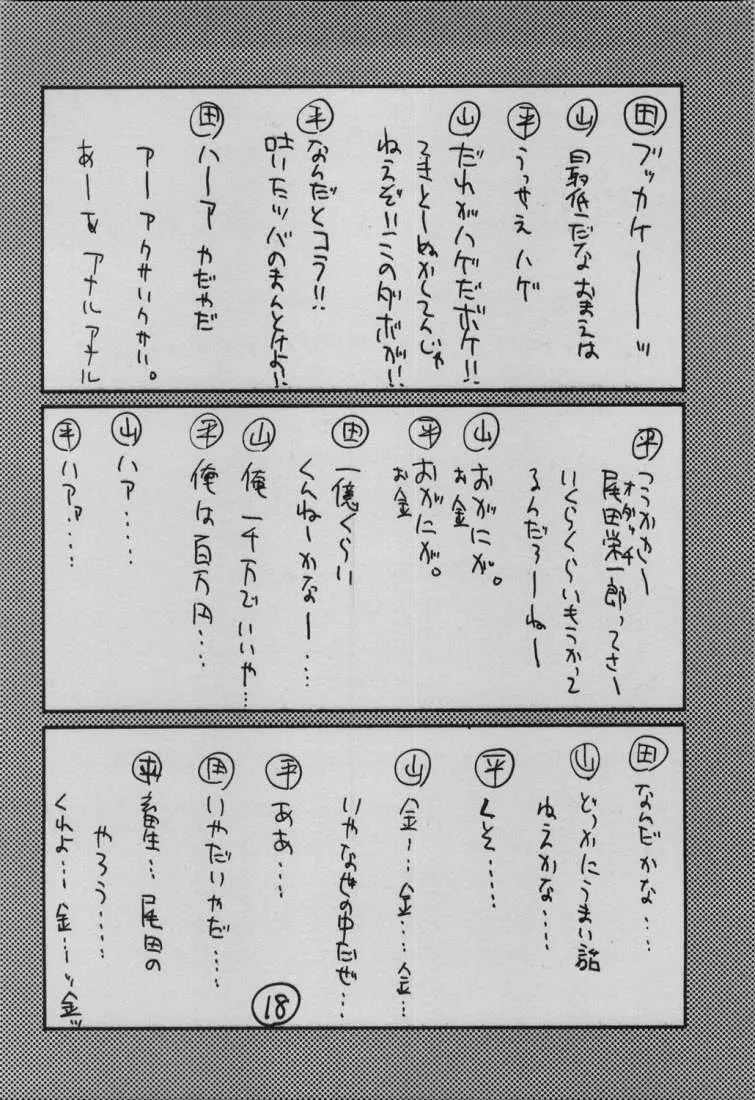 田 ブッカケーーーッ
山 最低だなおまえは
平 うっせえハゲ
山 だれがハゲだボケ!!
てきとーぬかしてんじゃ
ねえぞ!!このダボが!!
平 なんだとコラ!!
吐いたツバのまんとけよ!!
田 ハーア やだやだ
アー アクサいクサい。
あーあ アナル アナル
平 つうかさー
尾田栄一郎ってさー
オダッチ
いくらくらいもうかって
るんだろーねー
山 おがにが。
お金
平 おがにが。
お金
田 一億くらい
くんねーかなー……
山 俺 一千万でいいや…
平 俺は百万円……
山 ハァ……
平 ハァァ……
田 なんだかな……
山 どっかにうまい話
ねえかな……
平 くそ……
山 金…… 金…… 金…
いやなぜの中だぜ…
平 ああ……
田 いやだいやだ……
平 畜生… 尾田の
やろう……
くれよ… 金…ッ金ッ
18